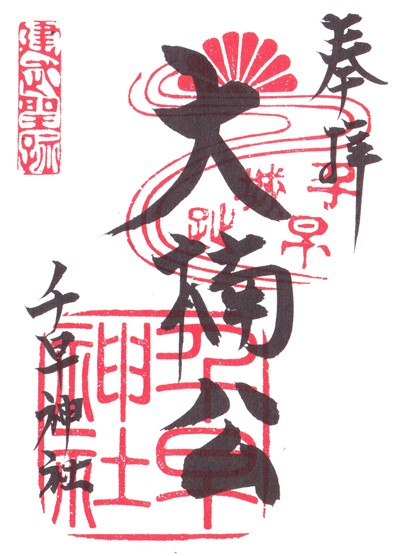 奉拝
千早
城址
大楠公
建武聖跡
千早神社
千早
神社